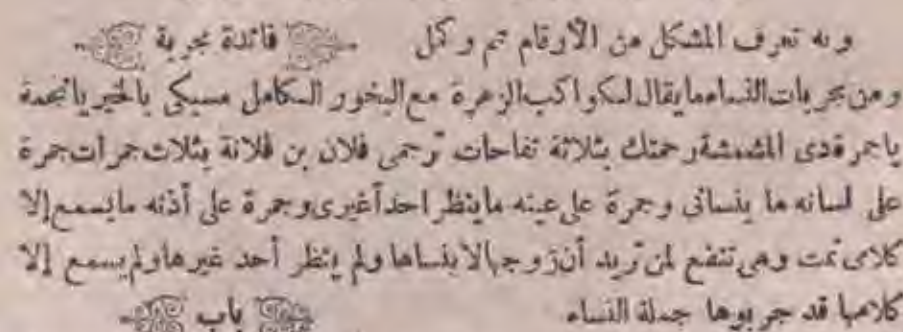 وبه تعرف المشكل من الأرقام تم وكمل فائدة مجربة
ومن مجربات النساء ما يقال لكواكب الزهرة مع البخور الكامل مسيكى بالخير يا نجمة
يا جمر قدى المشمشة رحمتك بثلاثة تفاحات ترحمى فلان بن فلانة بثلاث جمرات جمرة
على لسانه ما ينسانى وجمرة على عينه ما ينظر احداً غيرى وجمرة على أذنه ما يسمع إلا
كلامى تمت وهى تنفع لمن تريد أن زوجها لا ينساها ولم ينظر أحد غيرها ولم يسمع إلا
كلامها قد جربوها جملة النساء باب